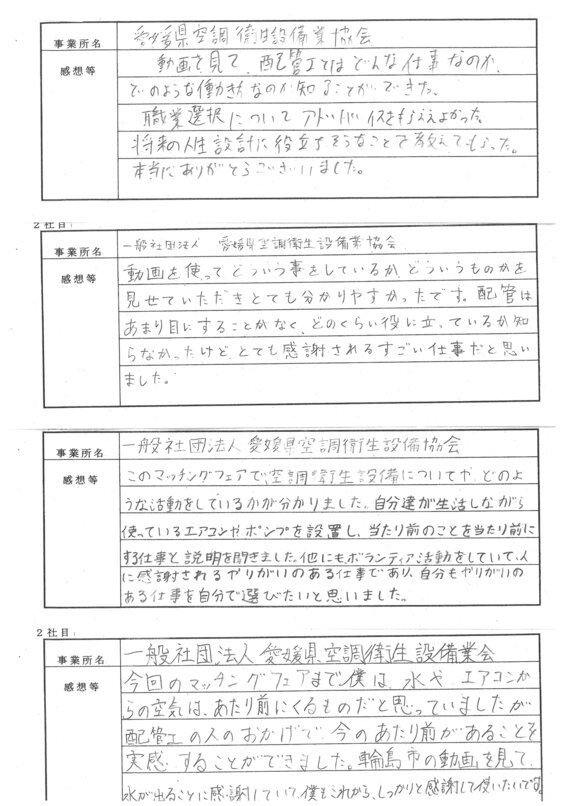 事業所名 愛媛県空調衛生設備業協会
感想等 動画を見て、配管工ではどんな仕事なのか、
どのような働き方なのか知ることができた。
職業選択についてアドバイスをもらえよかった。
将来の人生設計に役立ちそうなことを教えてもらった。
本当にありがとうございました。
2社目:
事業所名 一般社団法人 愛媛県空調衛生設備業協会
感想等 動画を使ってどういう事をしているか、どういうものかを
見せていただきとても分かりやすかったです。配管は
あまり目にすることがなく、どのくらい役に立っているか知
らなかったけど、とても感謝されるすごい仕事だと思い
ました。
事業所名 一般社団法人愛媛県空調衛生設備協会
感想等 このマッチングフェアで空調衛生設備についてや、どのよ
うな活動をしているかが分かりました。自分達が生活しながら
使っているエアコンやポンプを設置し、当たり前のことを当たり前に
する仕事と説明を聞きました。他にもボランティア活動をしていて、人
に感謝されるやりがいのある仕事であり、自分もやりがいの
ある仕事を自分で選びたいと思いました。
2社目:
事業所名 一般社団法人愛媛県空調衛生設備業会
感想等 今回のマッチングフェアまで僕は、水や、エアコンか
らの空気は、あたり前にくるものだと思っていましたが
配管工の人のおかげで、今のあたり前があることを
実感することができました。輪島市の動画を見て、
水が出ることに感謝していて、僕もこれから、しっかりと感謝して使いたいです。